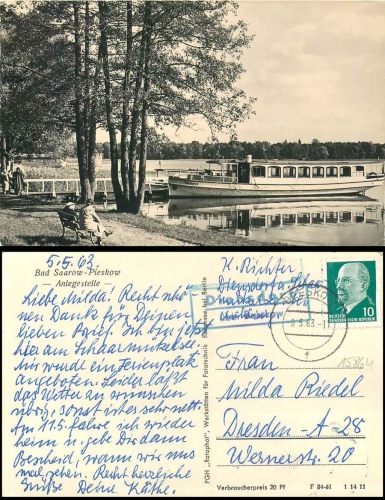 5.5.63.
Bad Saarow-Pieskow
— Anlegestelle —
Liebe Milda! Recht schö-
nen Dank für Deinen
lieben Brief. Ich bin jetzt
hier am Scharmützelsee.
Mir wurde ein Ferienplatz
angeboten. Leider läßt
das Wetter zu wünschen
übrig, sonst ist es sehr nett.
Am 11.5. fahre ich wieder
heim u. gebe Dir dann
Bescheid, wann wir uns
mal sehen. Recht herzliche
Grüße Deine Käthe.
PGH „Rotophot", Werkstätten für Fototechnik Bestensee bei Berlin
K. Richter
PIESKOW
6.5.63.-1
DEUTSCHE DEMOKRATISCHE REPUBLIK
10
15864
Frau
Milda Riedel
Dresden-A-28
Wernerstr. 20
Verbraucherpreis 20 Pf
F 84-61 1 14 11